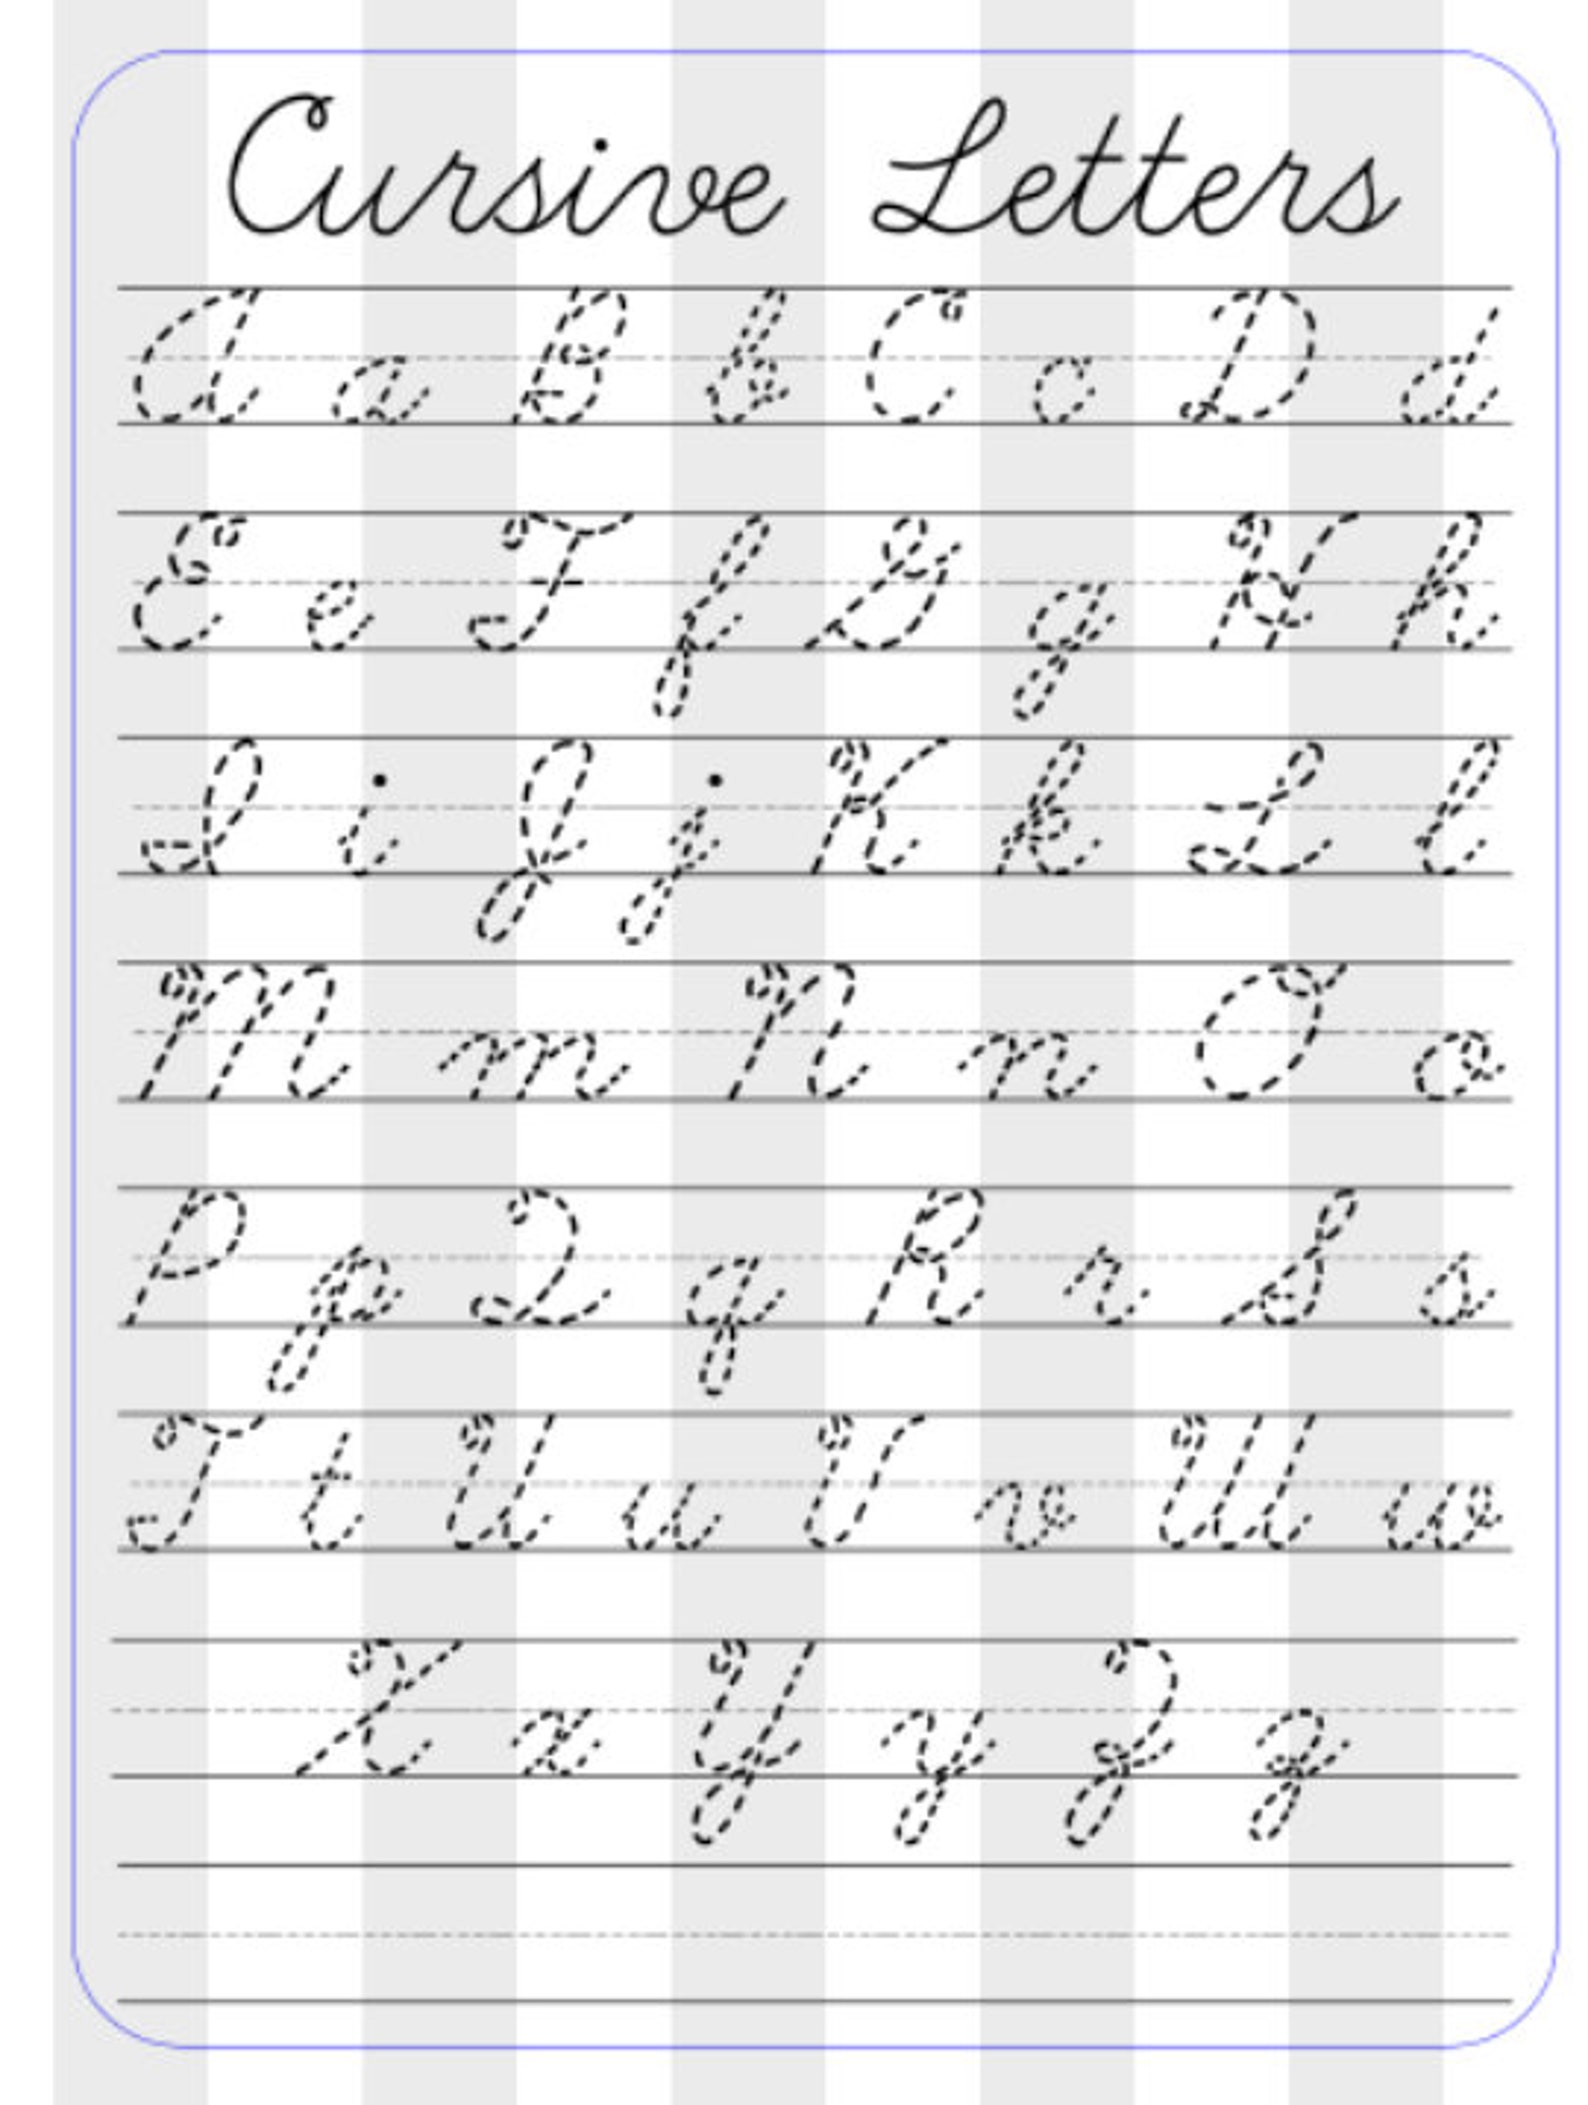 Cursive Letters
A a B b C c D d
E e F f G g H h
I i J j K k L l
M m N n O o
P p Q q R r S s
T t U u V v W w
X x Y y Z z